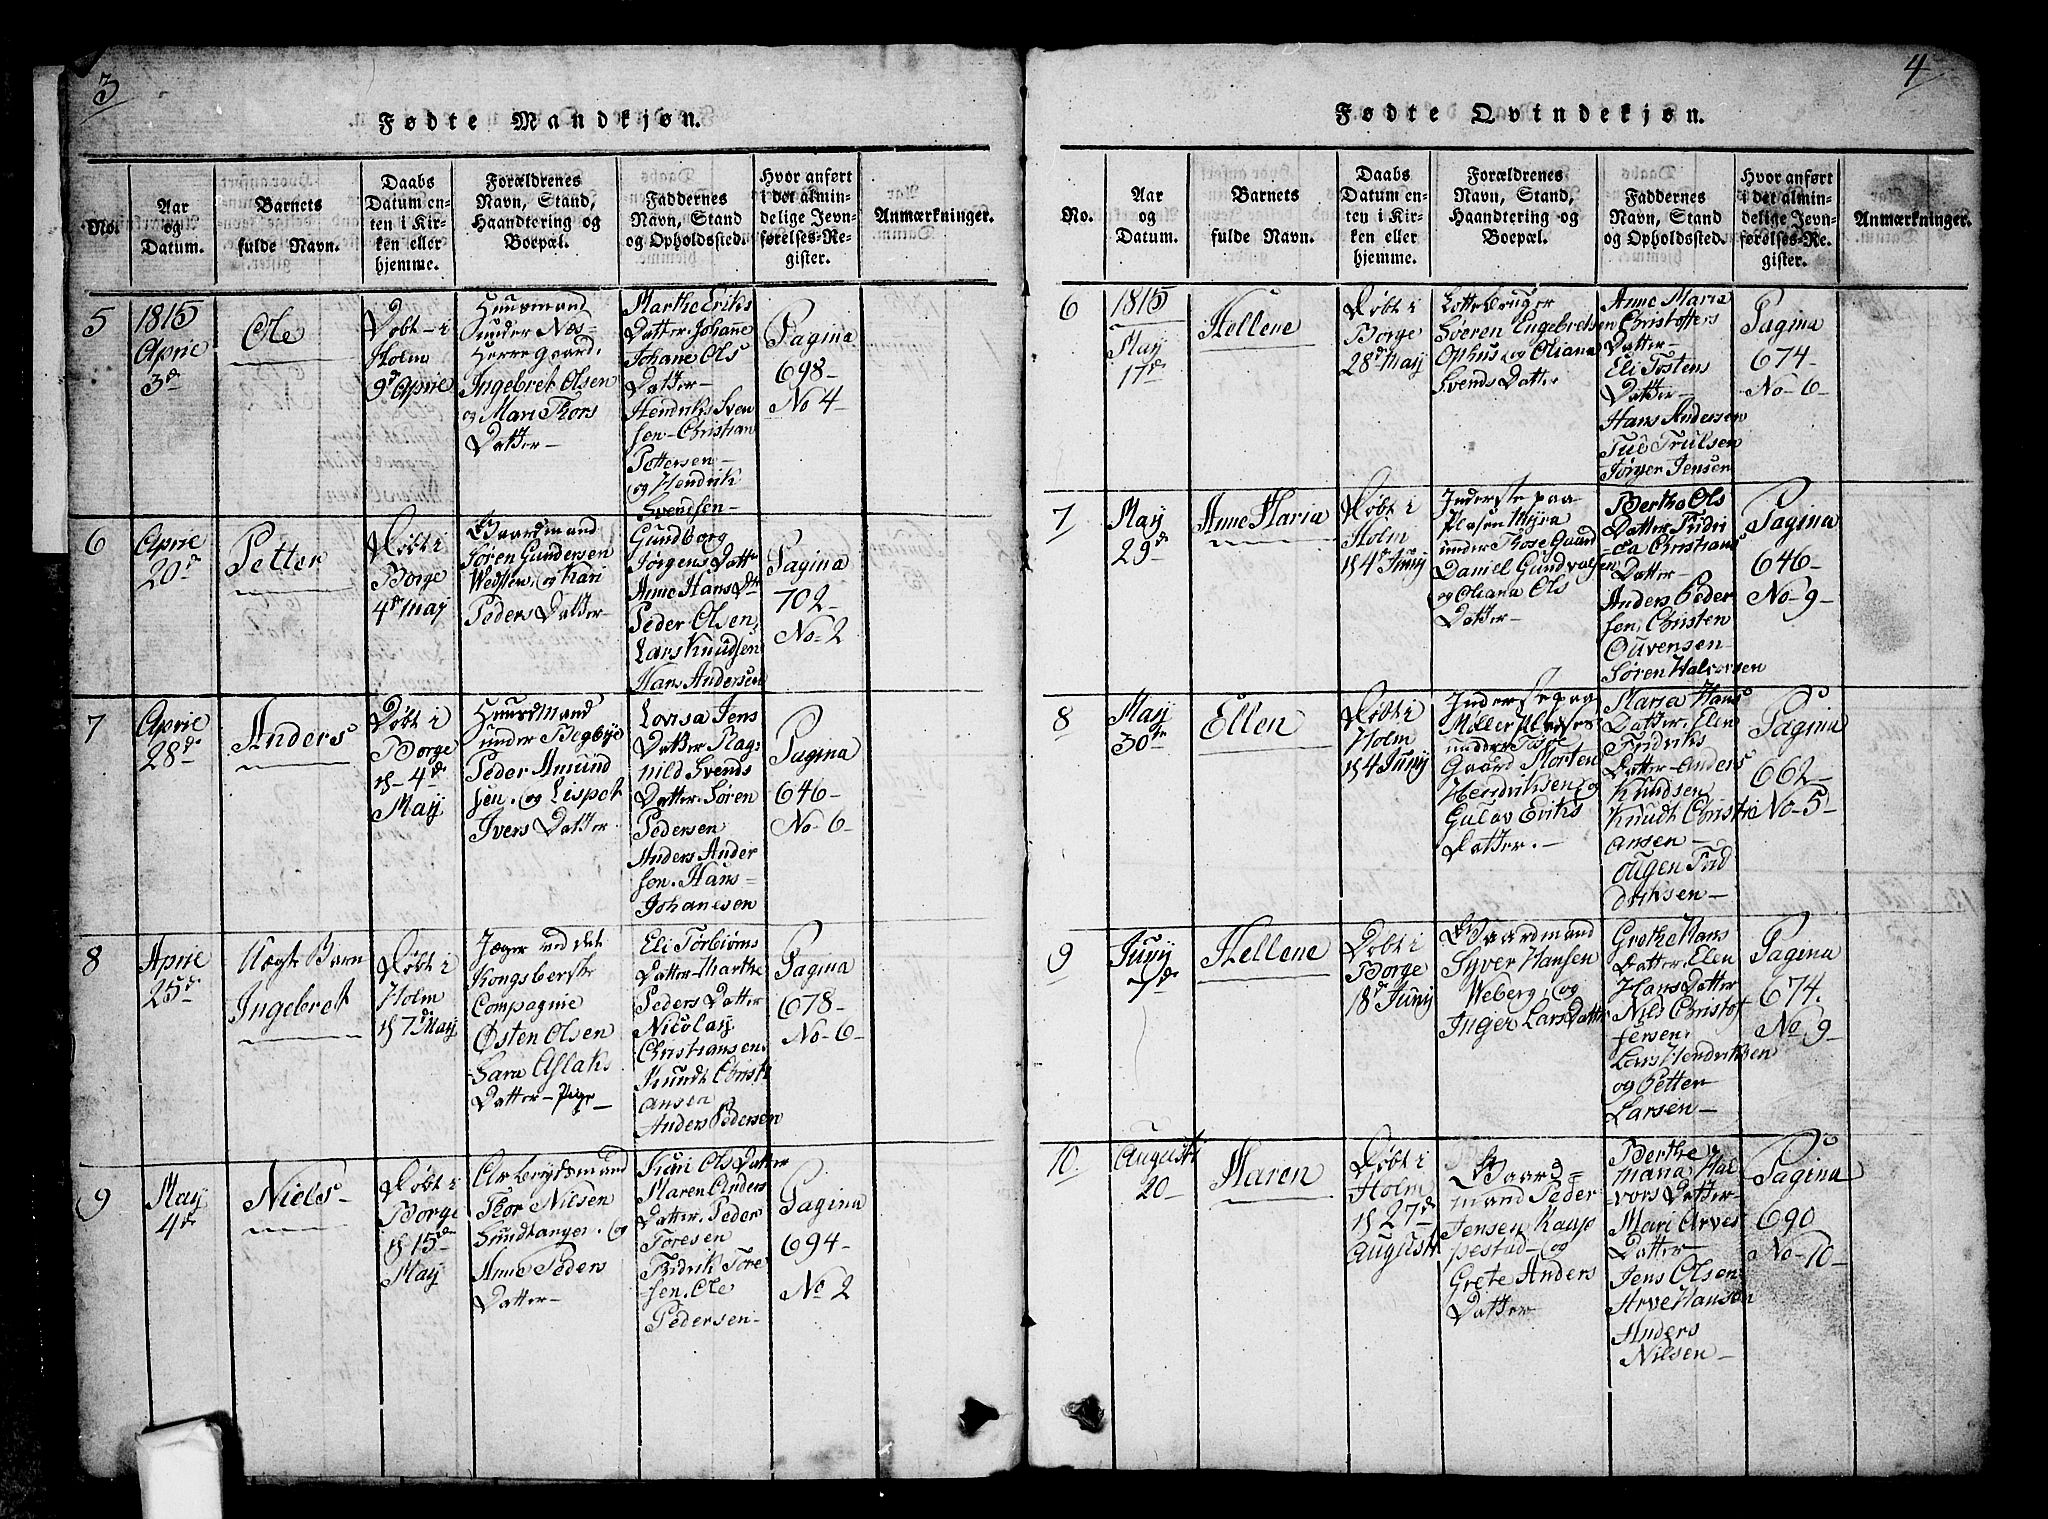 3
Fødte Mandkjøn.
No.
Aar
og
Datum.
Barnets
fulde Navn.
Daabs
Datum en-
ten i Kir-
ken eller
hjemme.
Forældrenes
Navn, Stand,
Haandtering og
Boepæl.
Faddernes
Navn, Stand
og Opholdssted.
Hvor anført
i det almin-
delige Jevn-
førelses-Re-
gister.
Anmærkninger.
5
1815
Aprie
3de
Ole
Døbt i
Holm
9d Aprie
Huusmand
under Næs-
Herre Gaard.
Ingebret Olsen
og Mari Thors
Datter-
Marthe Eriks
Datter. Johane
Johane Ols
Datter-
Hendriks Sven
sen-Christian
Pettersen-
og Hendrik
Svendsen-
Pagina
698-
No 4-
6
Aprie
20de
Petter
Døbt i
Borge
4de May
Gaardmand
Søren Gundersen
og Kari
Peders Datter-
Gundborg
Jørgens Dattr
Anne Hans Dr
Peder Olsen,
Lars Knudsen
Hans Andersen
Pagina
702-
No-2
7
Aprie
28de
Anders
Døbt i
Borge
d-4de
May
Huusmand
under Begbye
Peder Amund
sen. og Lispet
Ivers Datter
Lovisa Jens
Datter Rag-
nild Svends
Datter. Søren
Pedersen
Anders Ander
sen. Hans-
Johanesen
Pagina
646-
No-6-
8
Aprie
25de
Uægte Barn
Ingebret
Døbt i
Holm
d 7de May
Jæger ved det
Kongsbergske
Compagnie
Østen Olsen
Sara Aslaks
Datter-Pige-
Eli Torbiørns
Datter-Marthe
Peders Datter
Nicolay
Christiansen.
Knudt Christi
ansen
Anders Pedersen
Pagina
678-
No-6-
9
May
4de
Niels-
Døbt i
Borge
d 15de
May
Arbeydsmand
Thor Nilsen
Sundtangen. og
Anne Peders
Datter-
Turi Ols Datter
Maren Anders
Datter. Peder
Toresen
Fridrik Tore
sen. Ole
Pedersen-
Pagina
694-
No 2
4
Fødte Qvindekjøn.
No.
Aar
og
Datum.
Barnets
fulde Navn.
Daabs
Datum en-
ten i Kir-
ken eller
hjemme.
Forældrenes
Navn, Stand,
Haandtering og
Boepæl.
Faddernes
Navn, Stand
og Opholdssted.
Hvor anført
i det almin-
delige Jevn-
førelses-Re-
gister.
Anmærkninger.
6
1815
May
17de
Hellene
Døbt i
Borge
28de May
Lottebruger
Soeren Engebretsen
Ophus og Oliana
Svends Datter
Anne Maria
Christoffers
Datter-
Eli Tostens
Datter-
Hans Andersen
Trulsen
Jørgen Jensen
Pagina
674-
No-6-
7
May
29de
Anne Maria
Døbt i
Holm
d 4de Juny
Inderste paa
Plasen Myra
under Those Gaard
Daniel Gundvalsen
og Oliana Ols
Datter-
Berthe Ols
Datter Fridri
-ca Christians
Datter-
Anders Peder
sen, Christen
Ouvensen-
Søren Halvorsen
Pagina
646-
No-9-
8
May
30te
Ellen
Døbt i
Holm
d 4 Juny
Inderste paa
Møller Plasen
under Tose
Gaard Morten
Hendriksen og
Gulov Eriks
Datter.-
Maria Hans
Datter. Elen
Fridriks
Datter-Anders
Knudsen
Knudt Christi
ansen-
Ougen Frid
driksen-
Pagina
662-
No-5-
9
Juny
7de
Hellene
Døbt i
Borge
18de Juny
Gaardmand
Syver Hansen
Weberg. og
Inger Lars Datter
Grethe Hans
Datter. Elen
Hans Datter
Nils Christof
fersen.
Lars Hendriksen
og Petter
Larsen-
Pagina
674.
No-9-
10.
Augusti
20-
Maren
Døbt i
Holm
d 27de
Augusti
Gaard=
mand Peder
Jensen Raup
pestad-og
Grete Anders
Datter
Berthe
maria Hal
vors Datter-
Mari Arves
Datter-
Jens Olsen
Arve Hansen
Anders
Nilsen-
Pagina
690
No-10-